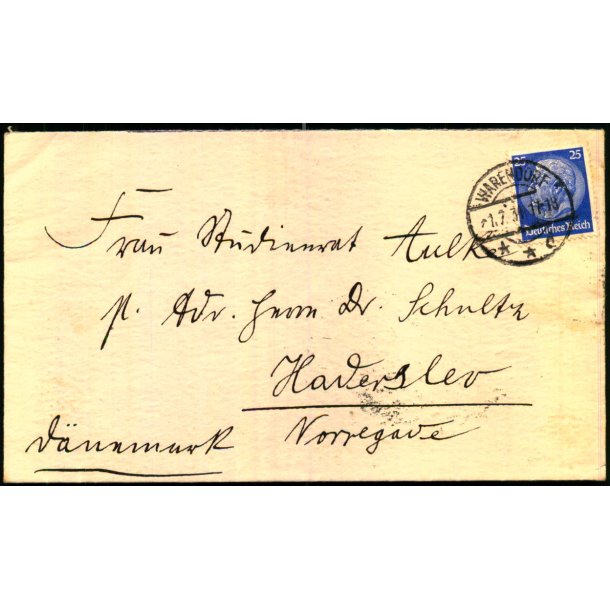 25 25
Deutsches Reich
WARENDORF
1.7.3 17-18
Frau Studienrat Aulk
p. Adr. Herrn Dr. Schultz
Haderslev
Dänemark Norregade